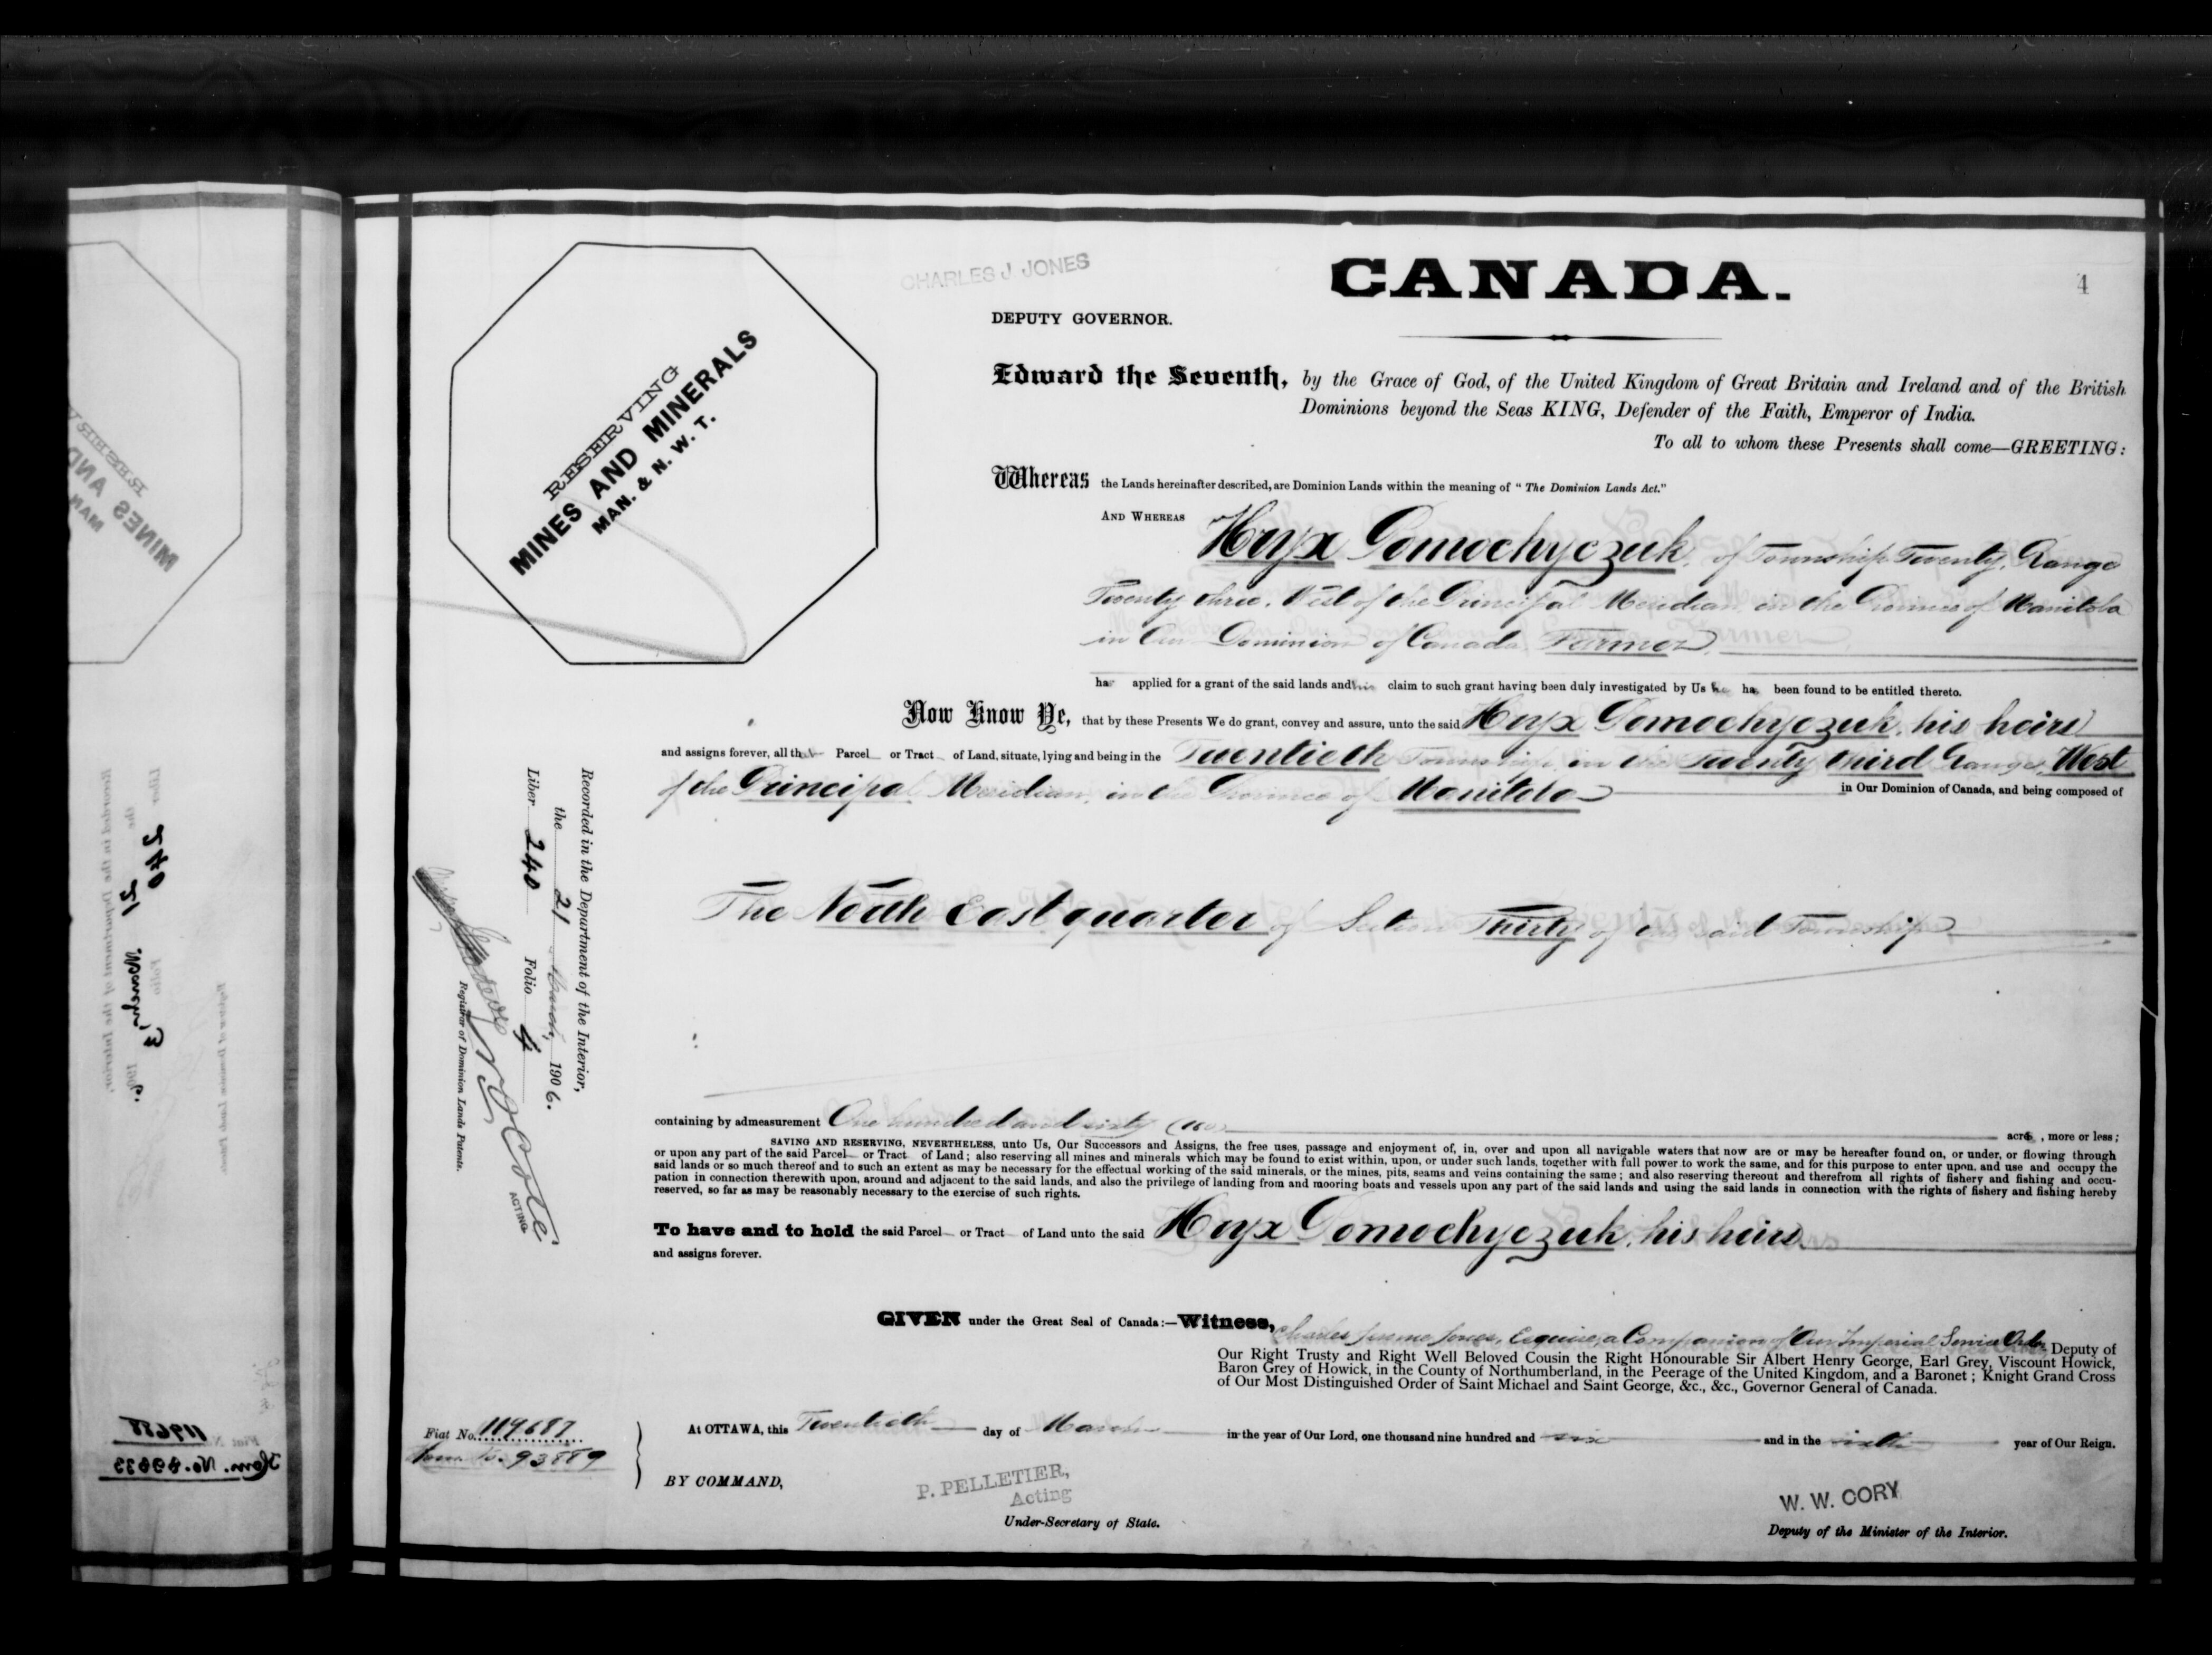 CHARLES J. JONES
CANADA.
4
DEPUTY GOVERNOR.
RESERVING
MINES AND MINERALS
MAN. & N. W. T.
Edward the Seventh, by the Grace of God, of the United Kingdom of Great Britain and Ireland and of the British
Dominions beyond the Seas KING, Defender of the Faith, Emperor of India.
To all to whom these Presents shall come—GREETING:
Whereas the Lands hereinafter described, are Dominion Lands within the meaning of "The Dominion Lands Act."
AND WHEREAS Hryx Gomochyczuk, of Township Twenty, Range
Twenty three, West of the Principal Meridian, in the Province of Manitoba
in Our Dominion of Canada, Farmer,
has applied for a grant of the said lands and his claim to such grant having been duly investigated by Us he has been found to be entitled thereto.
Now Know Ye, that by these Presents We do grant, convey and assure, unto the said Hryx Gomochyczuk, his heirs
and assigns forever, all that Parcel or Tract of Land, situate, lying and being in the Twentieth Township, in the Twenty third Range, West
of the Principal Meridian, in the Province of Manitoba in Our Dominion of Canada, and being composed of
The North East quarter of Section Thirty of the said Township
containing by admeasurement One hundred and sixty (160) acres, more or less;
SAVING AND RESERVING, NEVERTHELESS, unto Us, Our Successors and Assigns, the free uses, passage and enjoyment of, in, over and upon all navigable waters that now are or may be hereafter found on, or under, or flowing through
or upon any part of the said Parcel or Tract of Land; also reserving all mines and minerals which may be found to exist within, upon, or under such lands, together with full power to work the same, and for this purpose to enter upon, and use and occupy the
said lands or so much thereof and to such an extent as may be necessary for the effectual working of the said minerals, or the mines, pits, seams and veins containing the same; and also reserving thereout and therefrom all rights of fishery and fishing and occu-
pation in connection therewith upon, around and adjacent to the said lands, and also the privilege of landing from and mooring boats and vessels upon any part of the said lands and using the said lands in connection with the rights of fishery and fishing hereby
reserved, so far as may be reasonably necessary to the exercise of such rights.
To have and to hold the said Parcel or Tract of Land unto the said Hryx Gomochyczuk, his heirs
and assigns forever.
GIVEN under the Great Seal of Canada:—Witness, Charles Jerome Jones, Esquire, a Companion of Our Imperial Service Order, Deputy of
Our Right Trusty and Right Well Beloved Cousin the Right Honourable Sir Albert Henry George, Earl Grey, Viscount Howick,
Baron Grey of Howick, in the County of Northumberland, in the Peerage of the United Kingdom, and a Baronet; Knight Grand Cross
of Our Most Distinguished Order of Saint Michael and Saint George, &c., &c., Governor General of Canada.
At OTTAWA, this Twentieth day of March in the year of Our Lord, one thousand nine hundred and six and in the sixth year of Our Reign.
BY COMMAND,
P. PELLETIER,
Acting
Under-Secretary of State.
W. W. CORY
Deputy of the Minister of the Interior.
Fiat No. 119687
Hom. No. 93889
Recorded in the Department of the Interior,
the 21 March, 1906.
Liber 240 Folio 4
N. O. Coté
ACTING
Registrar of Dominion Lands Patents.